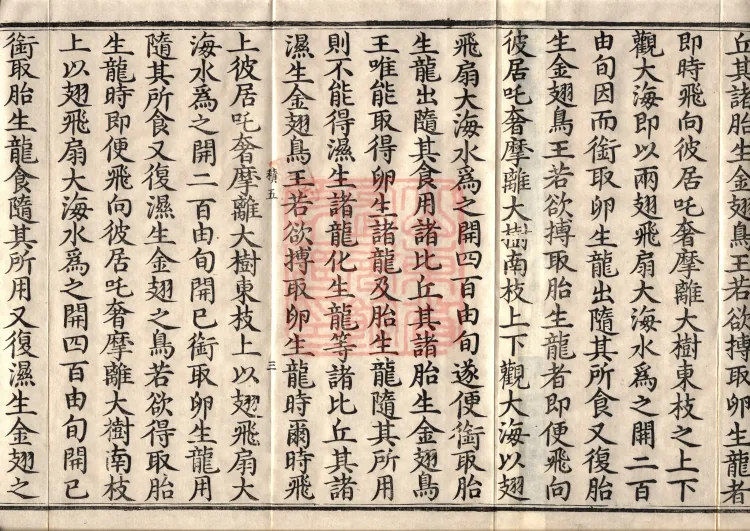 丘其諸胎生金翅鳥王若欲搏取卵生龍者
即時飛向彼居吒奢摩離大樹東枝之上下
觀大海即以兩翅飛扇大海水爲之開二百
由旬因而銜取卵生龍出隨其所食又復胎
生金翅鳥王若欲搏取胎生龍者即便飛向
彼居吒奢摩離大樹南枝上下觀大海以翅
飛扇大海水爲之開四百由旬遂便銜取胎
生龍出隨其食用諸比丘其諸胎生金翅鳥
王唯能取得卵生諸龍及胎生龍隨其所用
則不能得濕生諸龍化生龍等諸比丘其諸
濕生金翅鳥王若欲搏取卵生龍時爾時飛
積五 三
上彼居吒奢摩離大樹東枝上以翅飛扇大
海水爲之開二百由旬開已銜取卵生龍用
隨其所食又復濕生金翅之鳥若欲得取胎
生龍時即便飛向彼居吒奢摩離大樹南枝
上以翅飛扇大海水爲之開四百由旬開已
銜取胎生龍食隨其所用又復濕生金翅之